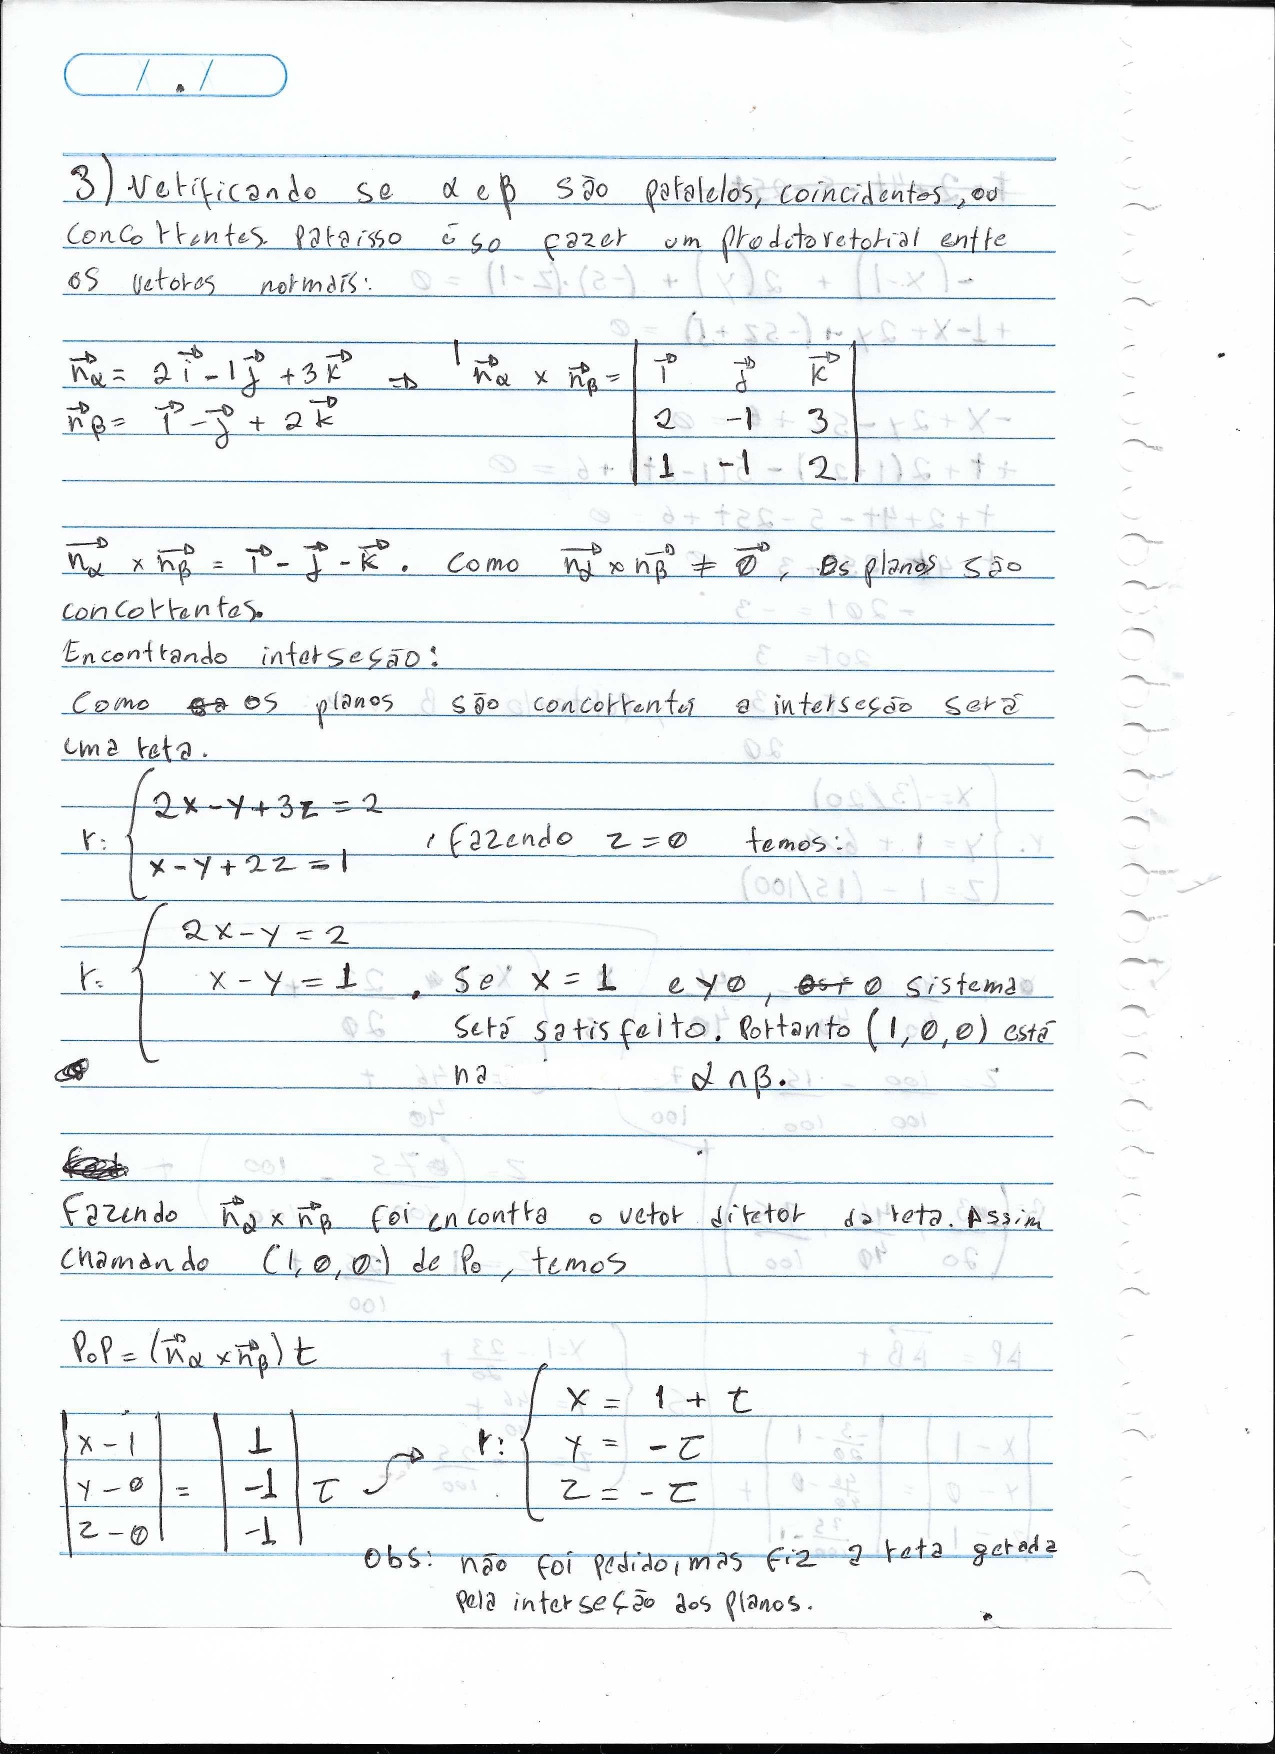 3) Verificando se α e β são paralelos, coincidentes, ou
concorrentes. Para isso é so fazer um produto vetorial entre
os vetores normais:
n⃗α = 2i⃗ - 1j⃗ + 3k⃗ ⇒ n⃗α × n⃗β = | i⃗ j⃗ k⃗ |
n⃗β = i⃗ - j⃗ + 2k⃗ | 2 -1 3 |
| 1 -1 2 |
n⃗α × n⃗β = i⃗ - j⃗ - k⃗. Como n⃗α × n⃗β ≠ 0⃗, os planos são
concorrentes.
Encontrando interseção:
Como os planos são concorrentes a interseção será
uma reta.
r: { 2x - y + 3z = 2
x - y + 2z = 1 , fazendo z = 0 temos:
r: { 2x - y = 2
x - y = 1 . Se x = 1 e y 0, o sistema
será satisfeito. Portanto (1, 0, 0) está
na α ∩ β.
Fazendo n⃗α × n⃗β foi encontra o vetor diretor da reta. Assim
chamando (1, 0, 0) de P₀, temos
P₀P = (n⃗α × n⃗β) t
| x - 1 | | 1 | r: { x = 1 + t
| y - 0 | = | -1 | t y = - t
| z - 0 | | -1 | z = - t
Obs: não foi pedido, mas fiz a reta gerada
pela interseção dos planos.